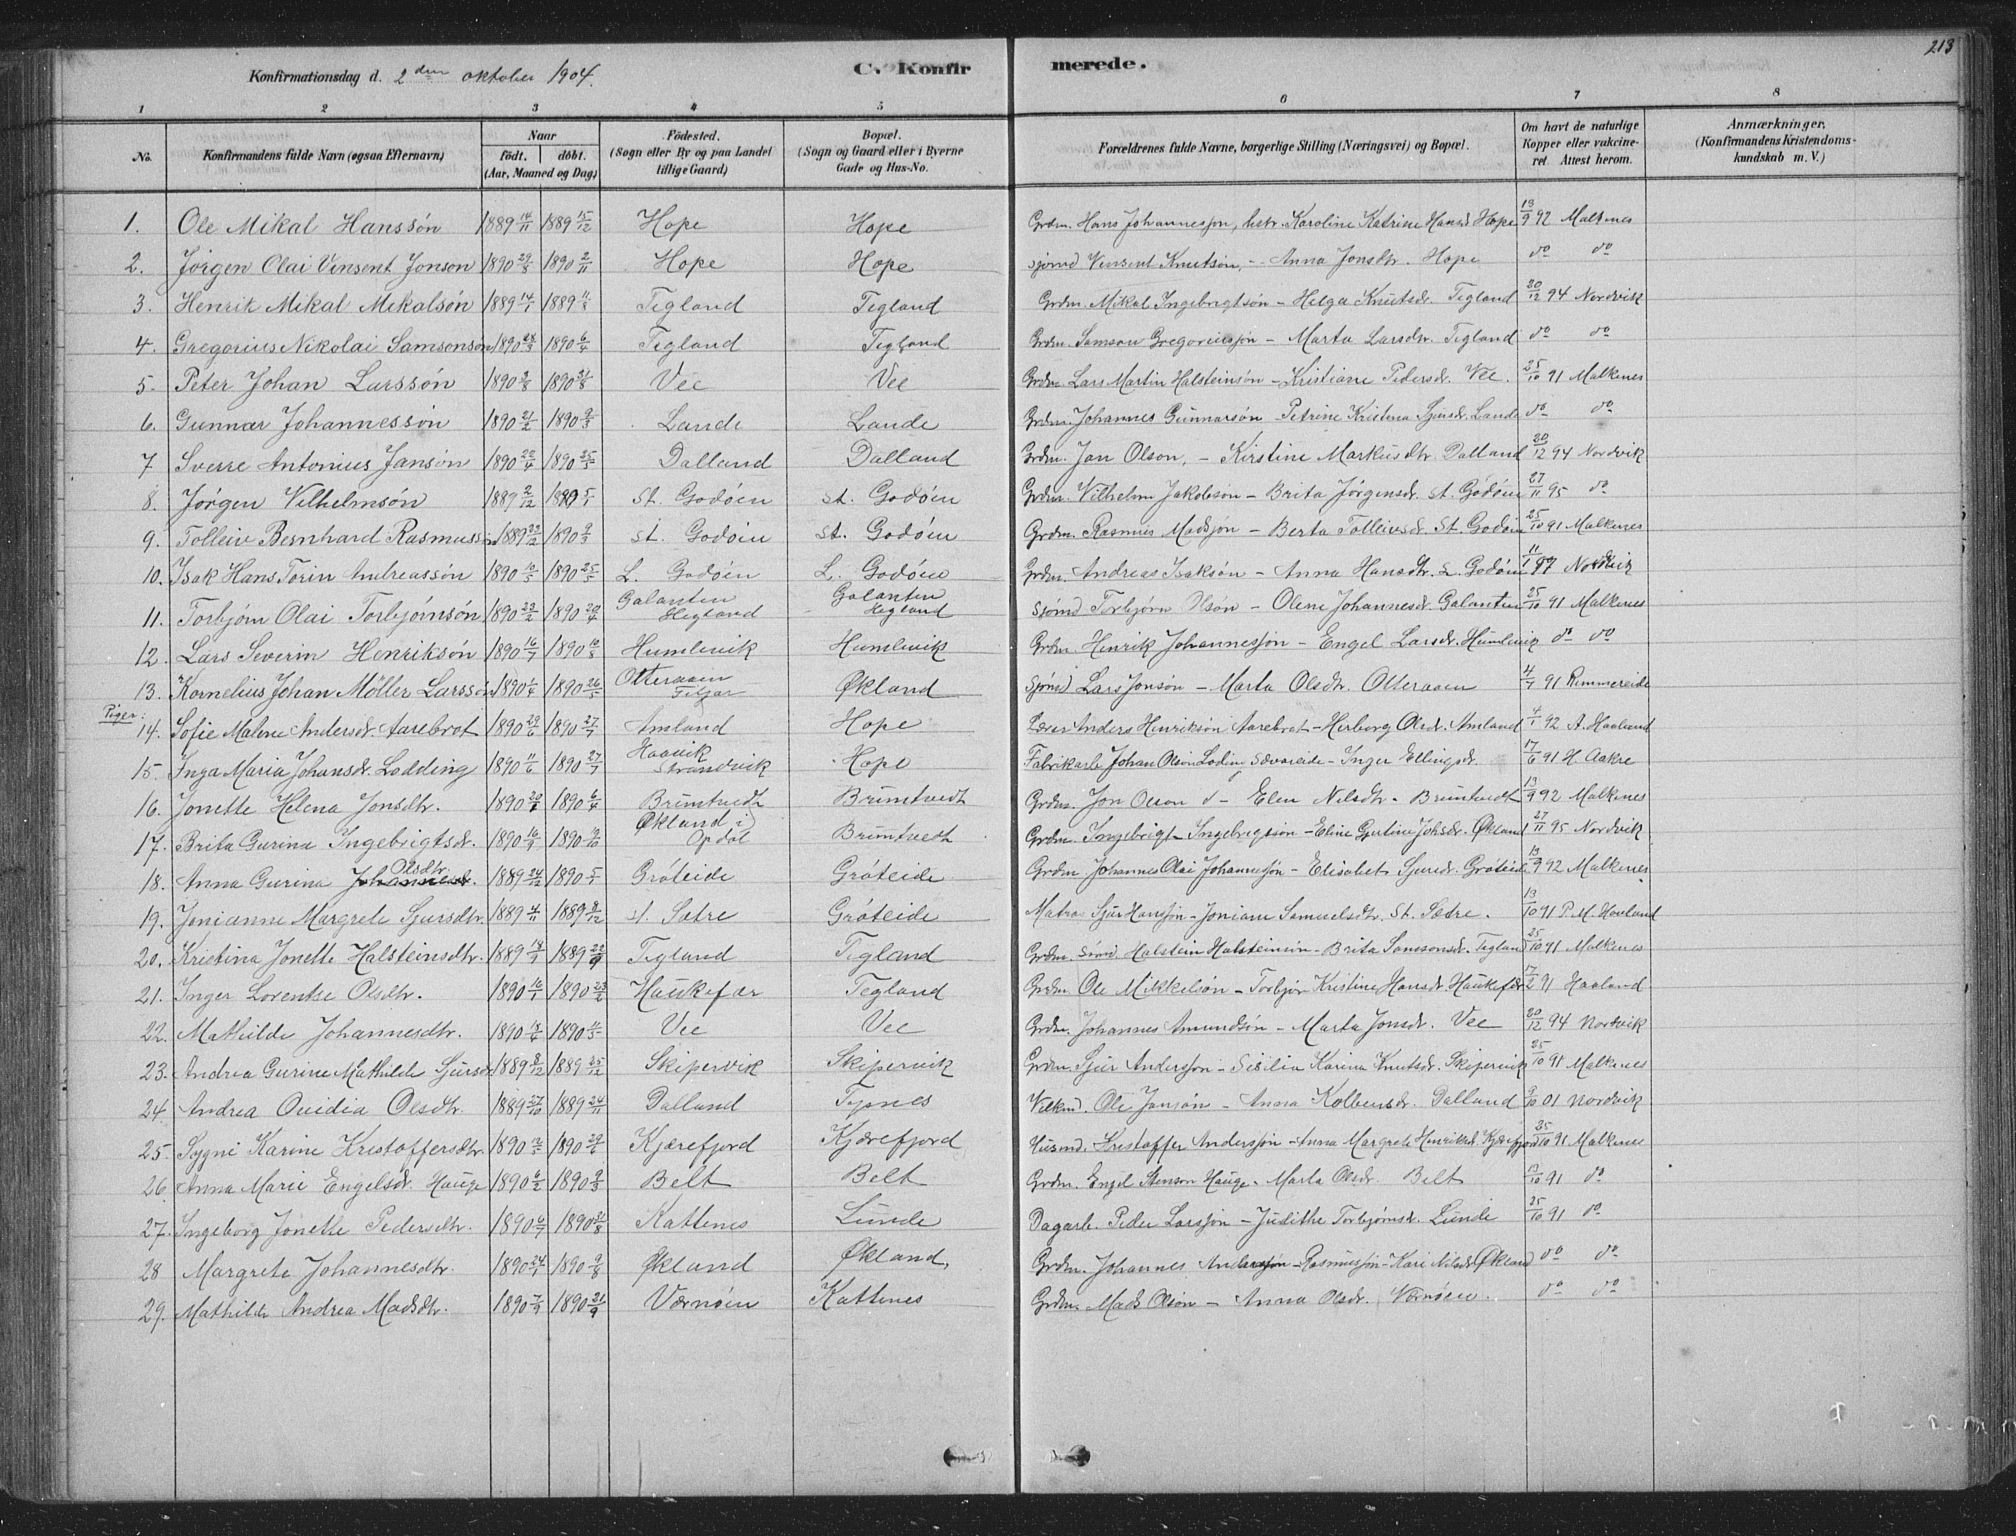 213
Konfirmationsdag d. 2den oktober 1904.
C. Konfirmerede.
1 2 3 4 5 6 7 8
No.
Konfirmandens fulde Navn (ogsaa Efternavn)
Naar
født. | døbt.
(Aar, Maaned og Dag)
Fødested.
(Sogn eller By og paa Landet
tillige Gaard)
Bopæl.
(Sogn og Gaard eller i Byerne
Gade og Hus-No.
Forældrenes fulde Navne, borgerlige Stilling (Næringsvei) og Bopæl.
Om havt de naturlige
Kopper eller vakcine-
ret. Attest herom.
Anmærkninger,
(Konfirmandens Kristendoms-
kundskab m. V.)
1. Ole Mikal Hanssøn 1889 14/11 1889 15/12 Hope Hope Grdm. Hans Johannessøn, hstr. Karoline Katrine Hansd. Hope 13/9 92 Malkenes
2. Jørgen Olai Vinsent Jonson 1890 29/8 1890 2/11 Hope Hope Sjømd Vinsent Knutsøn, - Anna Jonsdtr. Hope do do
3. Henrik Mikal Mikalsøn 1889 14/7 1889 11/8 Tegland Tegland Grdm. Mikal Ingebrigtsøn - Helga Knutsdr. Tegland 20/12 94 Nordvik
4. Gregorius Nikolai Samsonson 1890 1890 6/4 Tegland Tegland Grdm. Samson Gregoriussøn - Marta Larsdtr. Tegland do do
5. Peter Johan Larssøn 1890 2/8 1890 31/8 Vee Vee Grdm. Lars Martin Halsteinsøn - Kristiane Pedersdr. Vee. 25/10 91 Malkenes
6. Gunnar Johannessøn 1890 21/2 1890 9/3 Lande Lande Grdm. Johannes Gunnarsøn - Petrine Kristina Sjursdr. Lande do do
7 Sverre Antonius Jansøn 1890 22/4 1890 25/5 Dalland Dalland Grdm. Jan Olson, - Kirstine Markusdtr. Dalland 20/12 94 Nordvik
8. Jørgen Vilhelmsøn 1889 2/12 1890 5/1 St. Godøen St. Godøen Grdm. Vilhelm Jakobsøn - Brita Jørgensdr. St. Godøen 27/11 95 do
9. Tolleiv Bernhard Rasmussøn 1889 22/12 1890 9/3 St. Godøen St. Godøen Grdm. Rasmus Madsjøn - Berta Tolleivsdr. St. Godøen 25/10 91 Malkenes
10. Isak Hans Torin Andreassøn 1890 10/5 1890 25/5 L. Godøen L. Godøen Grdm. Andreas Isaksøn - Anna Hansdtr. L. Godøen 11/1 97 Nordvik
11. Torbjørn Olai Torbjørnsøn 1890 22/2 1890 20/4 Galanten Hegland Galanten Hegland Sjømd Torbjørn Olsøn - Olene Johannesdr. Galanten 25/10 91 Malkenes
12. Lars Severin Henriksøn 1890 16/7 1890 10/8 Humlevik Humlevik Grdm. Henrik Johannessøn - Engel Larsdr. Humlevik do do
13. Kornelius Johan Møller Larssøn 1890 1/4 1890 26/5 Otteraaen Fitjar Økland Sjømd Lars Jonsøn - Marta Olsdtr. Otteraaen 4/7 91 Rimmereide
Piger.
14. Sofie Malene Andersdr. Aarebrot 1890 29/6 1890 27/7 Amland Hope Anders Henriksøn Aarebrot - Herborg Olsdr. Amland 4/1 92 A. Haaland
15. Inga Maria Johansdr. Lodding 1890 11/6 1890 27/7 Haavik Strandvik Hope Fabrikarb. Johan Olson Loding Sævareide - Inger Ellingsdr. 17/6 91 H. Aakre
16. Jonette Helena Jonsdtr. 1890 20/1 1890 6/4 Bruntvedt Bruntvedt Grdm. Jon Olson - Elen Nilsdtr. - Bruntvedt 13/9 92 Malkenes
17. Brita Gurina Ingebrigtsdr. 1890 16/9 1890 9/10 Økland i Opdal Bruntvedt Grdm. Ingebrigt Ingebrigtsøn - Eline Gurine Johsdr. Økland 27/11 95 Nordvik
18. Anna Gurina Olsdtr. 1889 24/12 1890 5/1 Grøteide Grøteide Grdm. Johannes Olai Johannesjøn - Elisabet Sjursdr. Grøteide 13/9 92 Malkenes
19. Jonianne Margrete Sjursdtr. 1889 4/11 1889 8/12 St. Sætre Grøteide Matro. Sjur Hansjøn - Joniane Samuelsdtr. St. Sætre. 13/10 91 P. M. Haaland
20. Kristina Jonette Halsteinsdtr. 1889 18/9 1889 22/9 Tegland Tegland Grdm. Sjømd. Halstein Halsteinsøn - Brita Samsonsdr. Tegland 25/10 91 Malkenes
21. Inger Lorentse Olsdtr. 1890 16/1 1890 23/2 Haukefær Tegland Grdm. Ole Mikkelsøn - Torbjør Kristine Hansdr. Haukefær 17/2 91 Haaland
22. Mathilde Johannesdtr. 1890 18/4 1890 11/5 Vee Vee Grdm. Johannes Amundsøn - Marta Jonsdr. Vee 20/12 94 Nordvik
23. Andrea Gurine Mathilde Sjursdr 1889 8/12 1889 25/12 Skipervik Skipervik Grdm. Sjur Andersjon - Sisilia Karina Knutsdr. Skipervik 25/10 91 Malkenes
24 Andrea Ovidia Olsdtr. 1889 27/10 1889 24/11 Dalland Tysnes Ole Jansøn - Anna Kolbensdr. Dalland 9/10 01 Nordvik
25. Sygni Karine Kristoffersdtr. 1890 1890 29/6 Kjærefjord Kjærefjord Husmd. Kristoffer Andersjøn - Anna Margrete Henriksd. Kjærefjord 25/10 91 Malkenes
26. Anna Marie Engelsdr. Hauge 1890 6/2 1890 9/3 Belt Belt Grdm. Engel Stenson Hauge - Marta Olsdr. Belt 13/10 91 do
27. Ingeborg Jonette Pedersdtr. 1890 6/7 1890 31/8 Kattenes Lunde Dagarb. Peder Larsjøn - Judithe Torbjørnsd. Lunde 25/10 91 do
28 Margrete Johannesdtr. 1890 24/7 1890 9/8 Økland Økland, Grdm. Johannes Rasmusjøn - Kari Nilsdr. Økland do do
29. Mathilde Andrea Madsdtr. 1890 7/9 1890 21/9 Værnøen Kattenes Grdm. Mads Olsøn - Anna Olsdr. Værnøen. do do